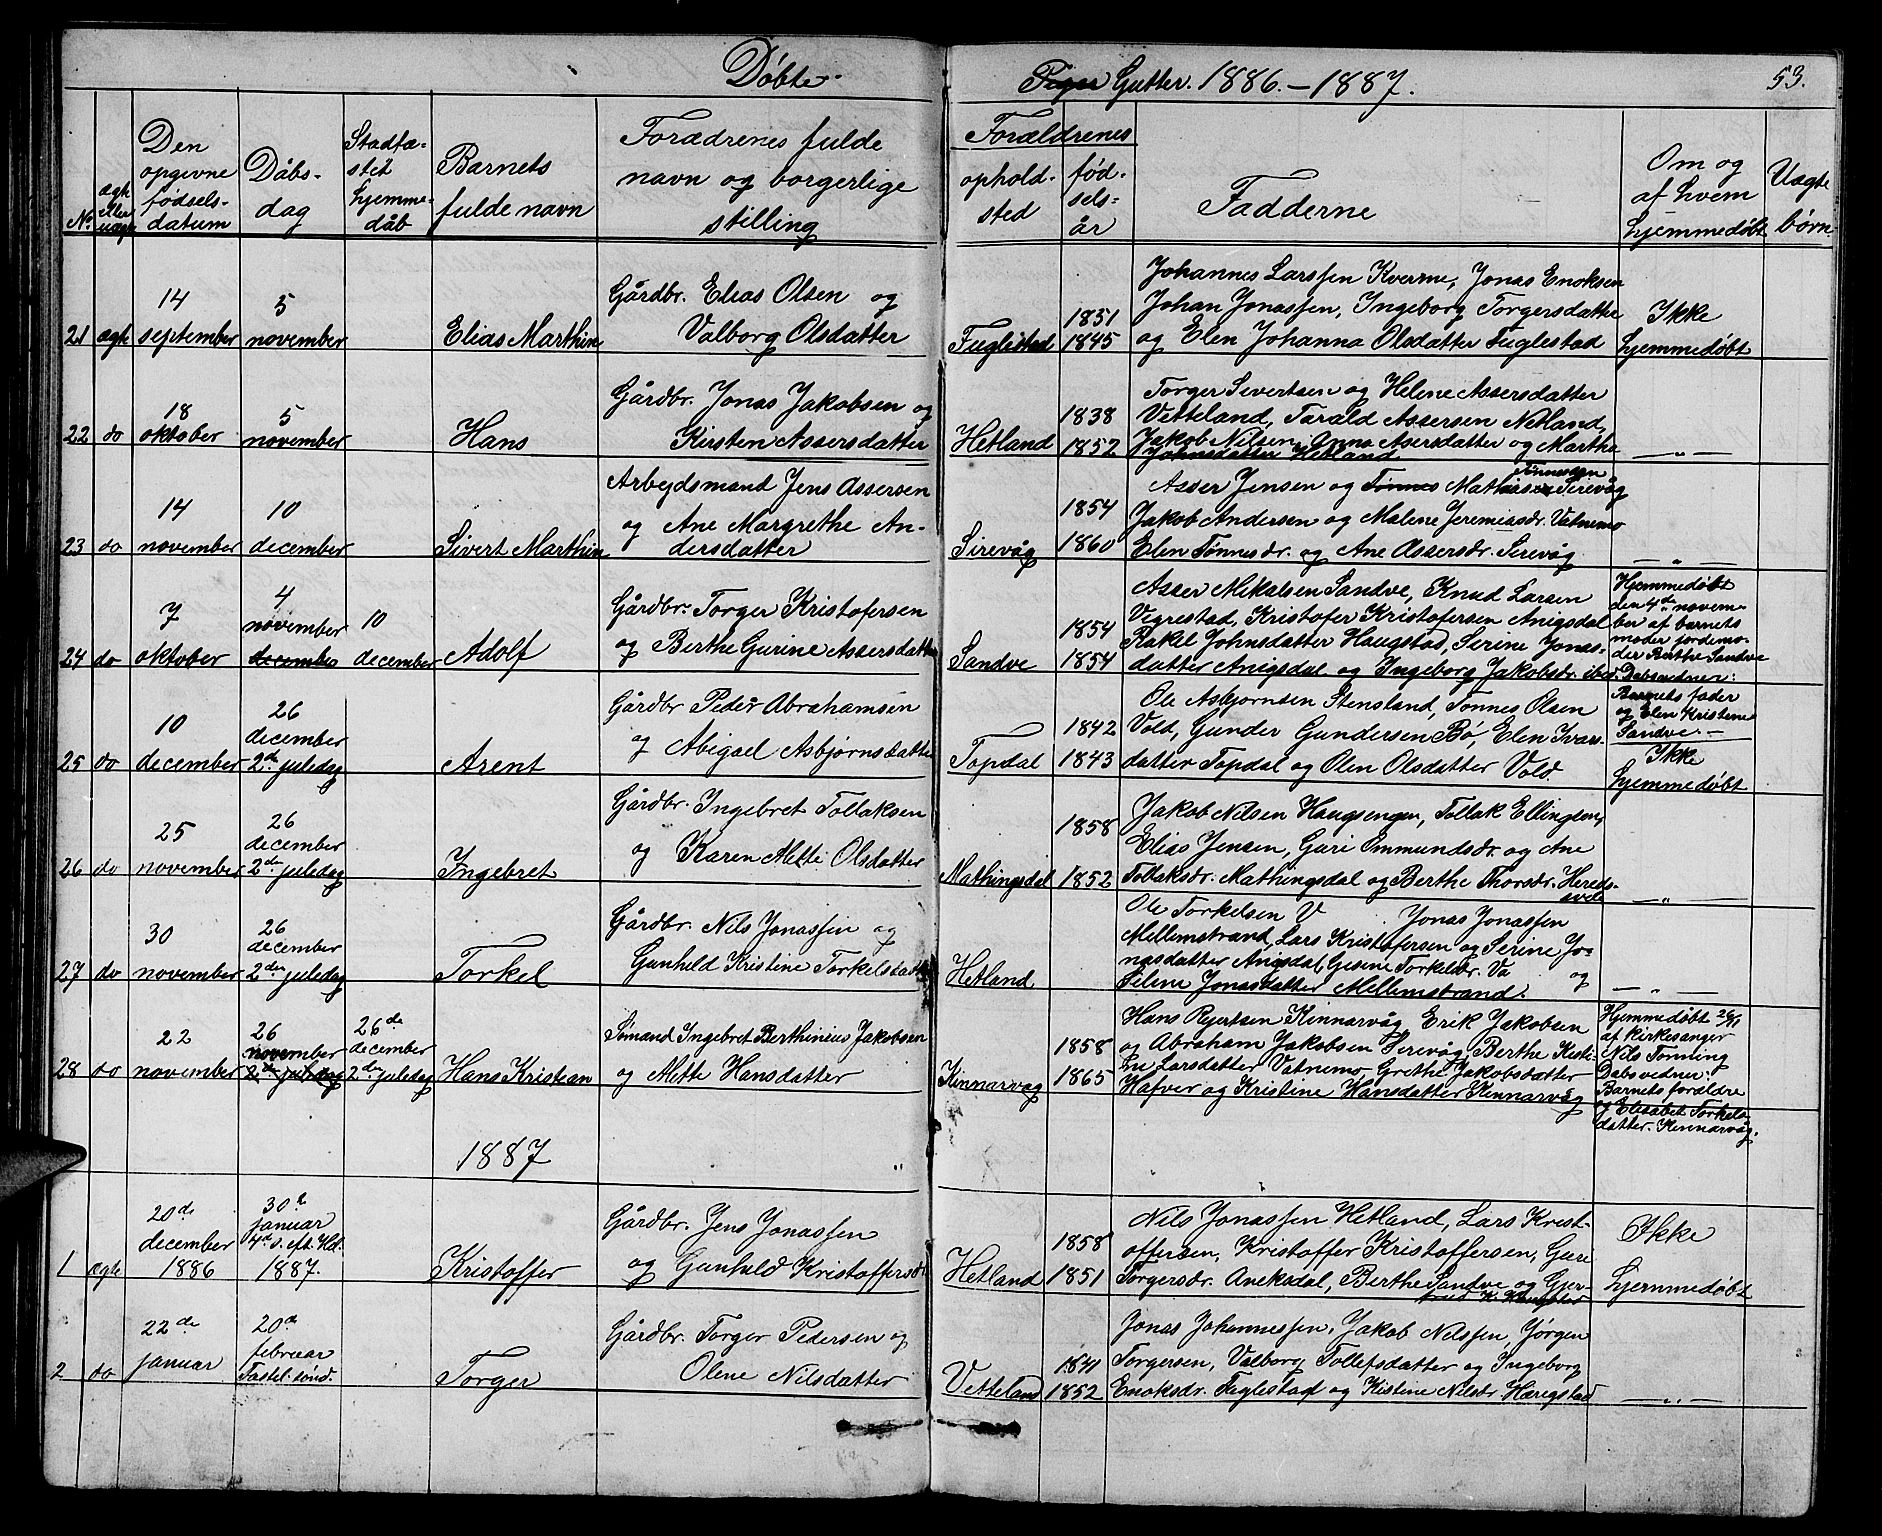 Døbte
~~Piger~~ Gutter. 1886.–1887.
53.
No.
ægte eller uægte
Den opgivne fødsels-datum
Dåbs-dag
Stadfæ-stet hjemme-dåb
Barnets fulde navn
Forædrenes fulde navn og borgerlige stilling
Forældrenes
ophold-sted
fød-sels-år
Fadderne
Om og af hvem hjemmedøbt
Uægte børn.
21 ægte
14 september
5 november
Elias Marthin
Gårdbr. Elias Olsen og
Valborg Olsdatter
Fuglestad
1851
1845
Johannes Larssen Kverme, Jonas Enoksen
Johan Jonassen, Ingeborg Torgersdatter
og Elen Johanna Olsdatter Fuglestad
Ikke
hjemmedøbt
22 do
18 oktober
5 november
Hans
Gårdbr. Jonas Jakobsen og
Kirsten Assersdatter
Hetland
1838
1852
Torger Sivertsen og Helene Assersdatter
Vetteland, Tarald Assersen Netland,
Jakob Nilsen, Anna Asersdatter og Martha
Johnsdatter Hetland
— „ —
23 do
14 november
10 december
Sivert Marthin
Arbejdsmand Jens Assersen
og Ane Margrethe An-
dersdatter
Sirevåg
1854
1860
Tønnessen
Asser Jensen og ~~Tønnes~~ Mathias Sirevåg
Jakob Andersen og Malene Jeremiasdr. Vatnemo
Elen Tønnesdr. og Ane Assersdr. Sirevåg
— „ —
24 do
7 oktober
4 november
~~december~~
10 december
Adolf
Gårdbr. Torger Kristofersen
og Berthe Gurine Assersdatter
Sandve
1854
1854
Asser Mikalsen Sandve, Knud Larsen
Vegrestad, Kristofer Kristofersen Anigsdal
Rakel Johnsdatter Haugstad, Serine Jonas-
datter Anigsdal og Ingeborg Jakobsdr. ibid.
Hjemmedøbt
den 4de novem-
ber af barnets
moder jordemo-
der Berthe Sandve
Dabsvidner:
Barnets fader
og Elen Kristene
Sandve. —
25 do
10 december
26 december
2den juledag
Arent
Gårdbr Peder Abrahamsen
og Abigael Asbjørnsdatter
Topdal
1842
1843
Ole Asbjørnsen Stensland, Tønnes Olsen
Vold, Gunder Gundersen Bø, Elen Ivars-
datter Topdal og Olen Olsdatter Vold
Ikke
hjemmedøbt
26 do
25 november
26 december
2den juledag
Ingebret
Gårdbr. Ingebret Tollaksen
og Karen Mette Olsdatter
Mathingsdal
1858
1852
Jakob Nilsen Haugsengen, Tollak Ellingsen,
Elias Jensen, Guri Ommundsdr. og Ane
Tollaksdr. Mathingsdal og Berthe Thorsdr. Hereds-
vele
— „ —
27 do
30 november
26 december
2den juledag
Torkel
Gårdbr. Nils Jonassen og
Gunhild Kristine Torkelsdatter
Hetland
Ole Torkelsen V Jonas Jonassen
Mellemstrand, Lars Kristofersen og Serine Jo-
nasdatter Anigsdal, Gesine Torkelsdr. Va og
Selene Jonasdatter Mellemstrand.
— „ —
28 do
22 november
26 november
~~2den juledag~~
26de december
2den juledag
Hans Kristian
Sømand Ingebret Berthinius Jakobsen
og Mette Hansdatter
Kinnarvåg
1858
1865
Hans Rejertsen Kinnarvåg, Erik Jakobsen
og Abraham Jakobsen Sirevåg, Berthe Kisti-
ne Larsdatter Vatnemo, Grethe Jakobsdatter
Hafver og Kristine Hansdatter Kinnarvåg
Hjemmedøbt 26/11
af kirkesanger
Nils Tonning
Dabsvidner:
Barnets forældre
og Elisabet Torkels-
datter. Kinnarvåg.
1887
1 ægte
20de december 1886
30te januar
4de s. eft. Hel.
1887.
Kristoffer
Gårdbr. Jens Jonassen
og Gunhild Kristoffersdr
Hetland
1858
1851
Nils Jonassen Hetland, Lars Krist-
offersen, Kristoffer Kristoffersen, Gure
Torgersdr. Aneksdal, Berthe Sandve og Gjer-
trud K. Haugstad
Ikke
hjemmedøbt
2 do
22de januar
20de februar
Fastel. sønd.
Torger
Gårdbr. Torger Pedersen og
Olene Nilsdatter
Vetteland
1841
1852
Jonas Johannessen, Jakob Nilssen, Jørgen
Torgersen, Valborg Tollefsdatter og Ingeborg
Enoksdr. Fuglestad og Kistine Nilsdr. Hærigstad
— „ —